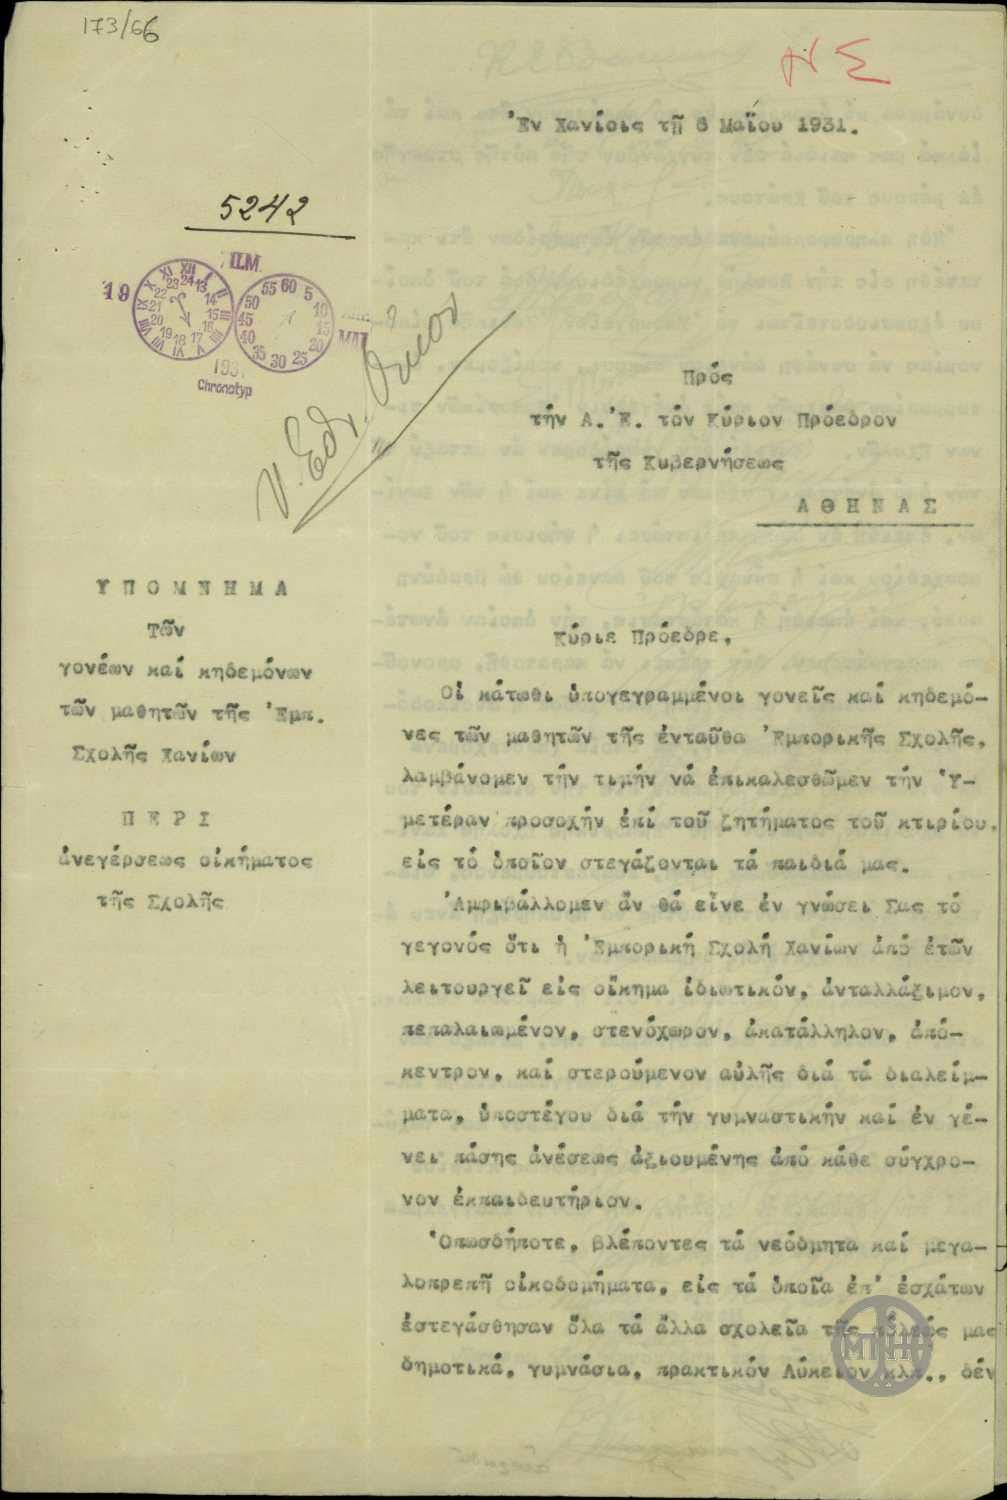 173/66
Ν Σ
Ἐν Χανίοις τῇ 6 Μαΐου 1931.
5242
Π.Μ.
19
ΜΑΙ
193
Chronotyp
Πρός
τήν Α. Ἐ. τόν Κύριον Πρόεδρον
τῆς Κυβερνήσεως
ΑΘΗΝΑΣ
ΥΠΟΜΝΗΜΑ
Τῶν
γονέων καί κηδεμόνων
τῶν μαθητῶν τῆς Ἐμπ.
Σχολῆς Χανίων
ΠΕΡΙ
ἀνεγέρσεως οἰκήματος
τῆς Σχολῆς
Κύριε Πρόεδρε,
Οἱ κάτωθι ὑπογεγραμμένοι γονεῖς καί κηδεμό-
νες τῶν μαθητῶν τῆς ἐνταῦθα Ἐμπορικῆς Σχολῆς,
λαμβάνομεν τήν τιμήν νά ἐπικαλεσθῶμεν τήν Ὑ-
μετέραν προσοχήν ἐπί τοῦ ζητήματος τοῦ κτιρίου,
εἰς τό ὁποῖον στεγάζονται τά παιδιά μας.
Ἀμφιβάλλομεν ἄν θά εἶνε ἐν γνώσει Σας τό
γεγονός ὅτι ἡ Ἐμπορική Σχολή Χανίων ἀπό ἐτῶν
λειτουργεῖ εἰς οἴκημα ἰδιωτικόν, ἀνταλλάξιμον,
πεπαλαιωμένον, στενόχωρον, ἀκατάλληλον, ἀπό-
κεντρον, καί στερούμενον αὐλῆς διά τά διαλείμ-
ματα, ὑποστέγου διά τήν γυμναστικήν καί ἐν γέ-
νει πάσης ἀνέσεως ἀξιουμένης ἀπό κάθε σύγχρο-
νον ἐκπαιδευτήριον.
Ὁπωσδήποτε, βλέποντες τά νεόδμητα καί μεγα-
λοπρεπῆ οἰκοδομήματα, εἰς τά ὁποῖα ἐπ' ἐσχάτων
ἐστεγάσθησαν ὅλα τά ἄλλα σχολεῖα τῆς πόλεώς μας
δημοτικά, γυμνάσια, πρακτικόν Λύκειον κλπ., δέν